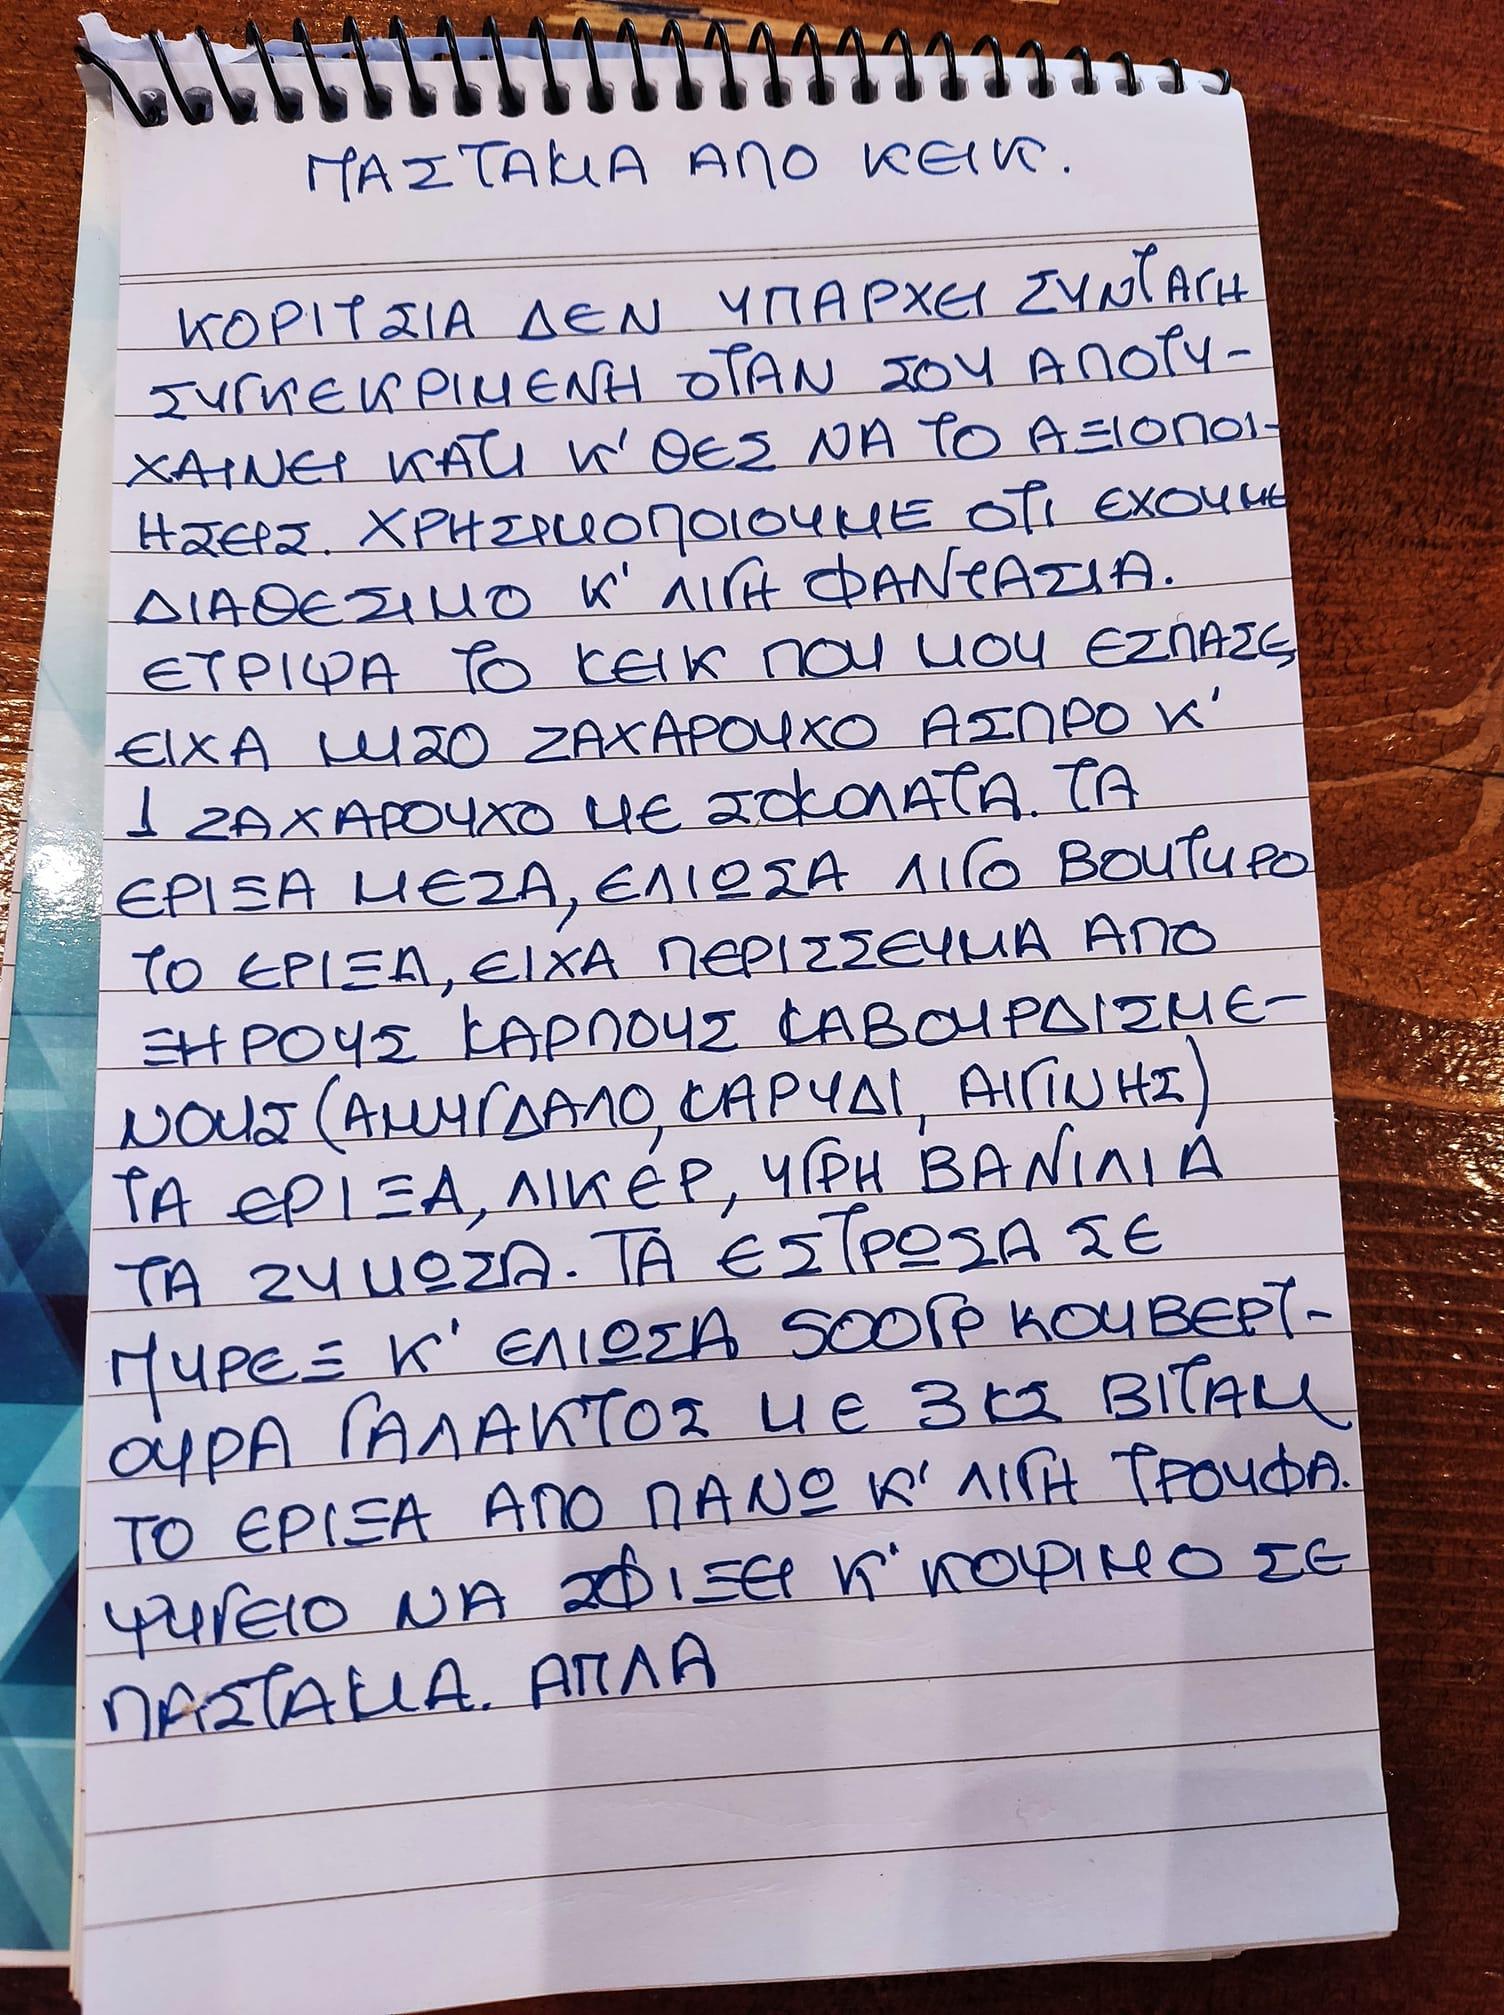 ΠΑΣΤΑΚΙΑ ΑΠΟ ΚΕΙΚ.
ΚΟΡΙΤΣΙΑ ΔΕΝ ΥΠΑΡΧΕΙ ΣΥΝΤΑΓΗ
ΣΥΓΚΕΚΡΙΜΕΝΗ ΟΤΑΝ ΣΟΥ ΑΠΟΤΥ-
ΧΑΙΝΕΙ ΚΑΤΙ Κ' ΘΕΣ ΝΑ ΤΟ ΑΞΙΟΠΟΙ-
ΗΣΕΙΣ. ΧΡΗΣΙΜΟΠΟΙΟΥΜΕ ΟΤΙ ΕΧΟΥΜΕ
ΔΙΑΘΕΣΙΜΟ Κ' ΛΙΓΗ ΦΑΝΤΑΣΙΑ.
ΕΤΡΙΨΑ ΤΟ ΚΕΙΚ ΠΟΥ ΜΟΥ ΕΣΠΑΣΕ
ΕΙΧΑ ΜΙΣΟ ΖΑΧΑΡΟΥΧΟ ΑΣΠΡΟ Κ'
1 ΖΑΧΑΡΟΥΧΟ ΜΕ ΣΟΚΟΛΑΤΑ. ΤΑ
ΕΡΙΞΑ ΜΕΣΑ, ΕΛΙΩΣΑ ΛΙΓΟ ΒΟΥΤΥΡΟ
ΤΟ ΕΡΙΞΑ, ΕΙΧΑ ΠΕΡΙΣΣΕΥΜΑ ΑΠΟ
ΞΗΡΟΥΣ ΚΑΡΠΟΥΣ ΚΑΒΟΥΡΔΙΣΜΕ-
ΝΟΥΣ (ΑΜΥΓΔΑΛΟ, ΚΑΡΥΔΙ, ΑΙΓΙΝΗΣ)
ΤΑ ΕΡΙΞΑ, ΛΙΚΕΡ, ΥΓΡΗ ΒΑΝΙΛΙΑ
ΤΑ ΖΥΜΩΣΑ. ΤΑ ΕΣΤΡΩΣΑ ΣΕ
ΠΥΡΕΞ Κ' ΕΛΙΩΣΑ 500ΓΡ ΚΟΥΒΕΡΤ-
ΟΥΡΑ ΓΑΛΑΚΤΟΣ ΜΕ 3 ΚΣ ΒΙΤΑΜ
ΤΟ ΕΡΙΞΑ ΑΠΟ ΠΑΝΩ Κ' ΛΙΓΗ ΤΡΟΥΦΑ.
ΨΥΓΕΙΟ ΝΑ ΣΦΙΞΕΙ Κ' ΚΟΨΙΜΟ ΣΕ
ΠΑΣΤΑΚΙΑ. ΑΠΛΑ